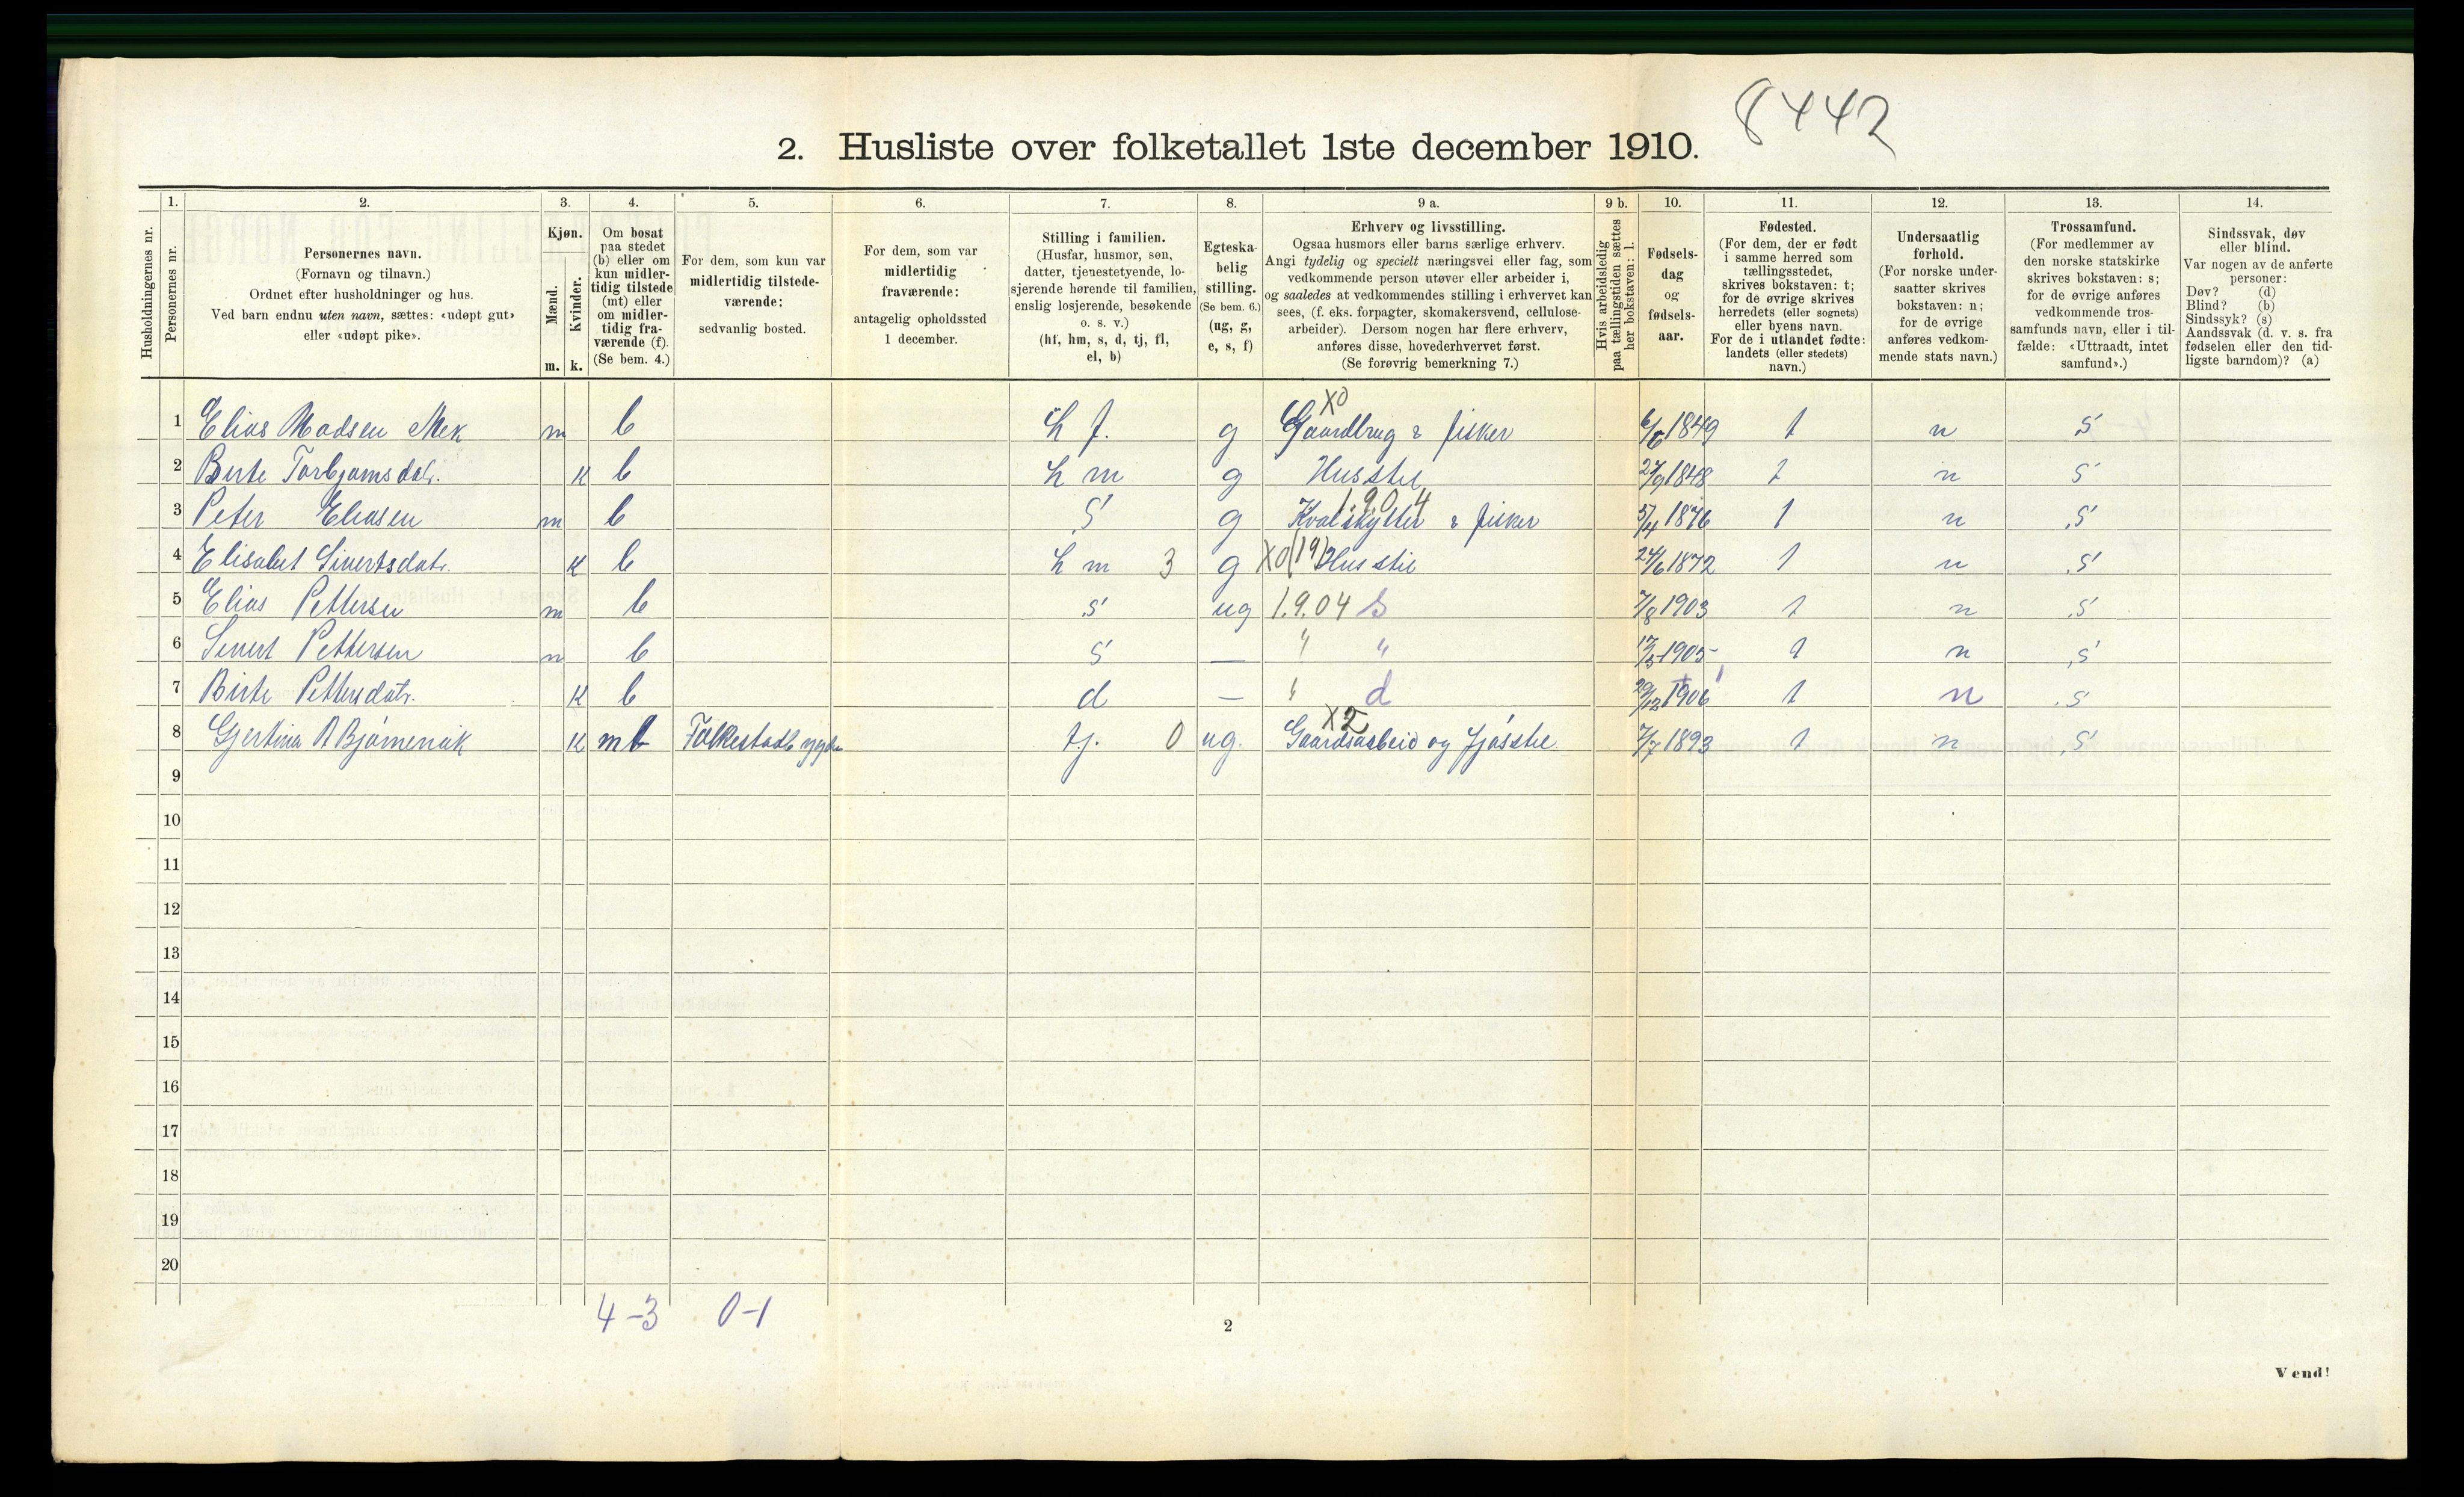 8442
2. Husliste over folketallet 1ste december 1910.
Husholdningernes nr.
1.
Personernes nr.
2.
Personernes navn.
(Fornavn og tilnavn.)
Ordnet efter husholdninger og hus.
Ved barn endnu uten navn, sættes: «udøpt gut»
eller «udøpt pike».
3.
Kjøn.
Mænd.
Kvinder.
m. k.
4.
Om bosat
paa stedet
(b) eller om
kun midler-
tidig tilstede
(mt) eller
om midler-
tidig fra-
værende (f).
(Se bem. 4.)
5.
For dem, som kun var
midlertidig tilstede-
værende:
sedvanlig bosted.
6.
For dem, som var
midlertidig
fraværende:
antagelig opholdssted
1 december.
7.
Stilling i familien.
(Husfar, husmor, søn,
datter, tjenestetyende, lo-
sjerende hørende til familien,
enslig losjerende, besøkende
o. s. v.)
(hf, hm, s, d, tj, fl,
el, b)
8.
Egteska-
belig
stilling.
(Se bem. 6.)
(ug, g,
e, s, f)
9 a.
Erhverv og livsstilling.
Ogsaa husmors eller barns særlige erhverv.
Angi tydelig og specielt næringsvei eller fag, som
vedkommende person utøver eller arbeider i,
og saaledes at vedkommendes stilling i erhvervet kan
sees, (f. eks. forpagter, skomakersvend, cellulose-
arbeider). Dersom nogen har flere erhverv,
anføres disse, hovederhvervet først.
(Se forøvrig bemerkning 7.)
9 b.
Hvis arbeidsledig
paa tællingstiden sættes
her bokstaven: l.
10.
Fødsels-
dag
og
fødsels-
aar.
11.
Fødested.
(For dem, der er født
i samme herred som
tællingsstedet,
skrives bokstaven: t;
for de øvrige skrives
herredets (eller sognets)
eller byens navn.
For de i utlandet fødte:
landets (eller stedets)
navn.)
12.
Undersaatlig
forhold.
(For norske under-
saatter skrives
bokstaven: n;
for de øvrige
anføres vedkom-
mende stats navn.)
13.
Trossamfund.
(For medlemmer av
den norske statskirke
skrives bokstaven: s;
for de øvrige anføres
vedkommende tros-
samfunds navn, eller i til-
fælde: «Uttraadt, intet
samfund».)
14.
Sindssvak, døv
eller blind.
Var nogen av de anførte
personer:
Døv? (d)
Blind? (b)
Sindssyk? (s)
Aandssvak (d. v. s. fra
fødselen eller den tid-
ligste barndom)? (a)
X0
1 Elias Madsen Mek m b h f. g Gaardbrug & fisker 1849 t n s
2 Birte Torbjørnsdatr. k b h m g Husstel 27/9 1848 t n s
1.9.04
3 Peter Eliasen m b s g Kvalskytter & fisker 5/4 1876 t n s
4 Elisabet Sivertsdatr. k b h m 3 g X0(19) Husstel 24/6 1872 t n s
5 Elias Pettersen m b s ug 1.9.04 s 7/8 1903 t n s
6 Sivert Pettersen m b s — " " 1905 t n s
7 Birte Pettersdatr. k b d — " d 29/12 1906 t n s
X2
8 Gjertina A Bjørnerak k mt Folkestadbygden tj. 0 ug. Gaardsarbeid og fjøsstel 7/7 1893 t n s
9
10
11
12
13
14
15
16
17
18
19
20
4-3 0-1
2
Vend!